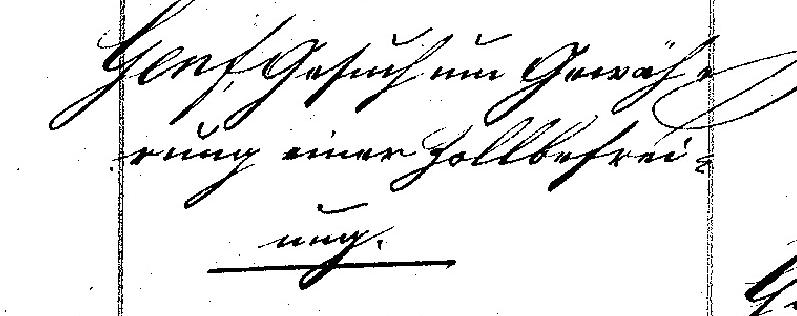 Genf, Gesuch um Gewäh-
rung einer Zollbefrei-
ung.